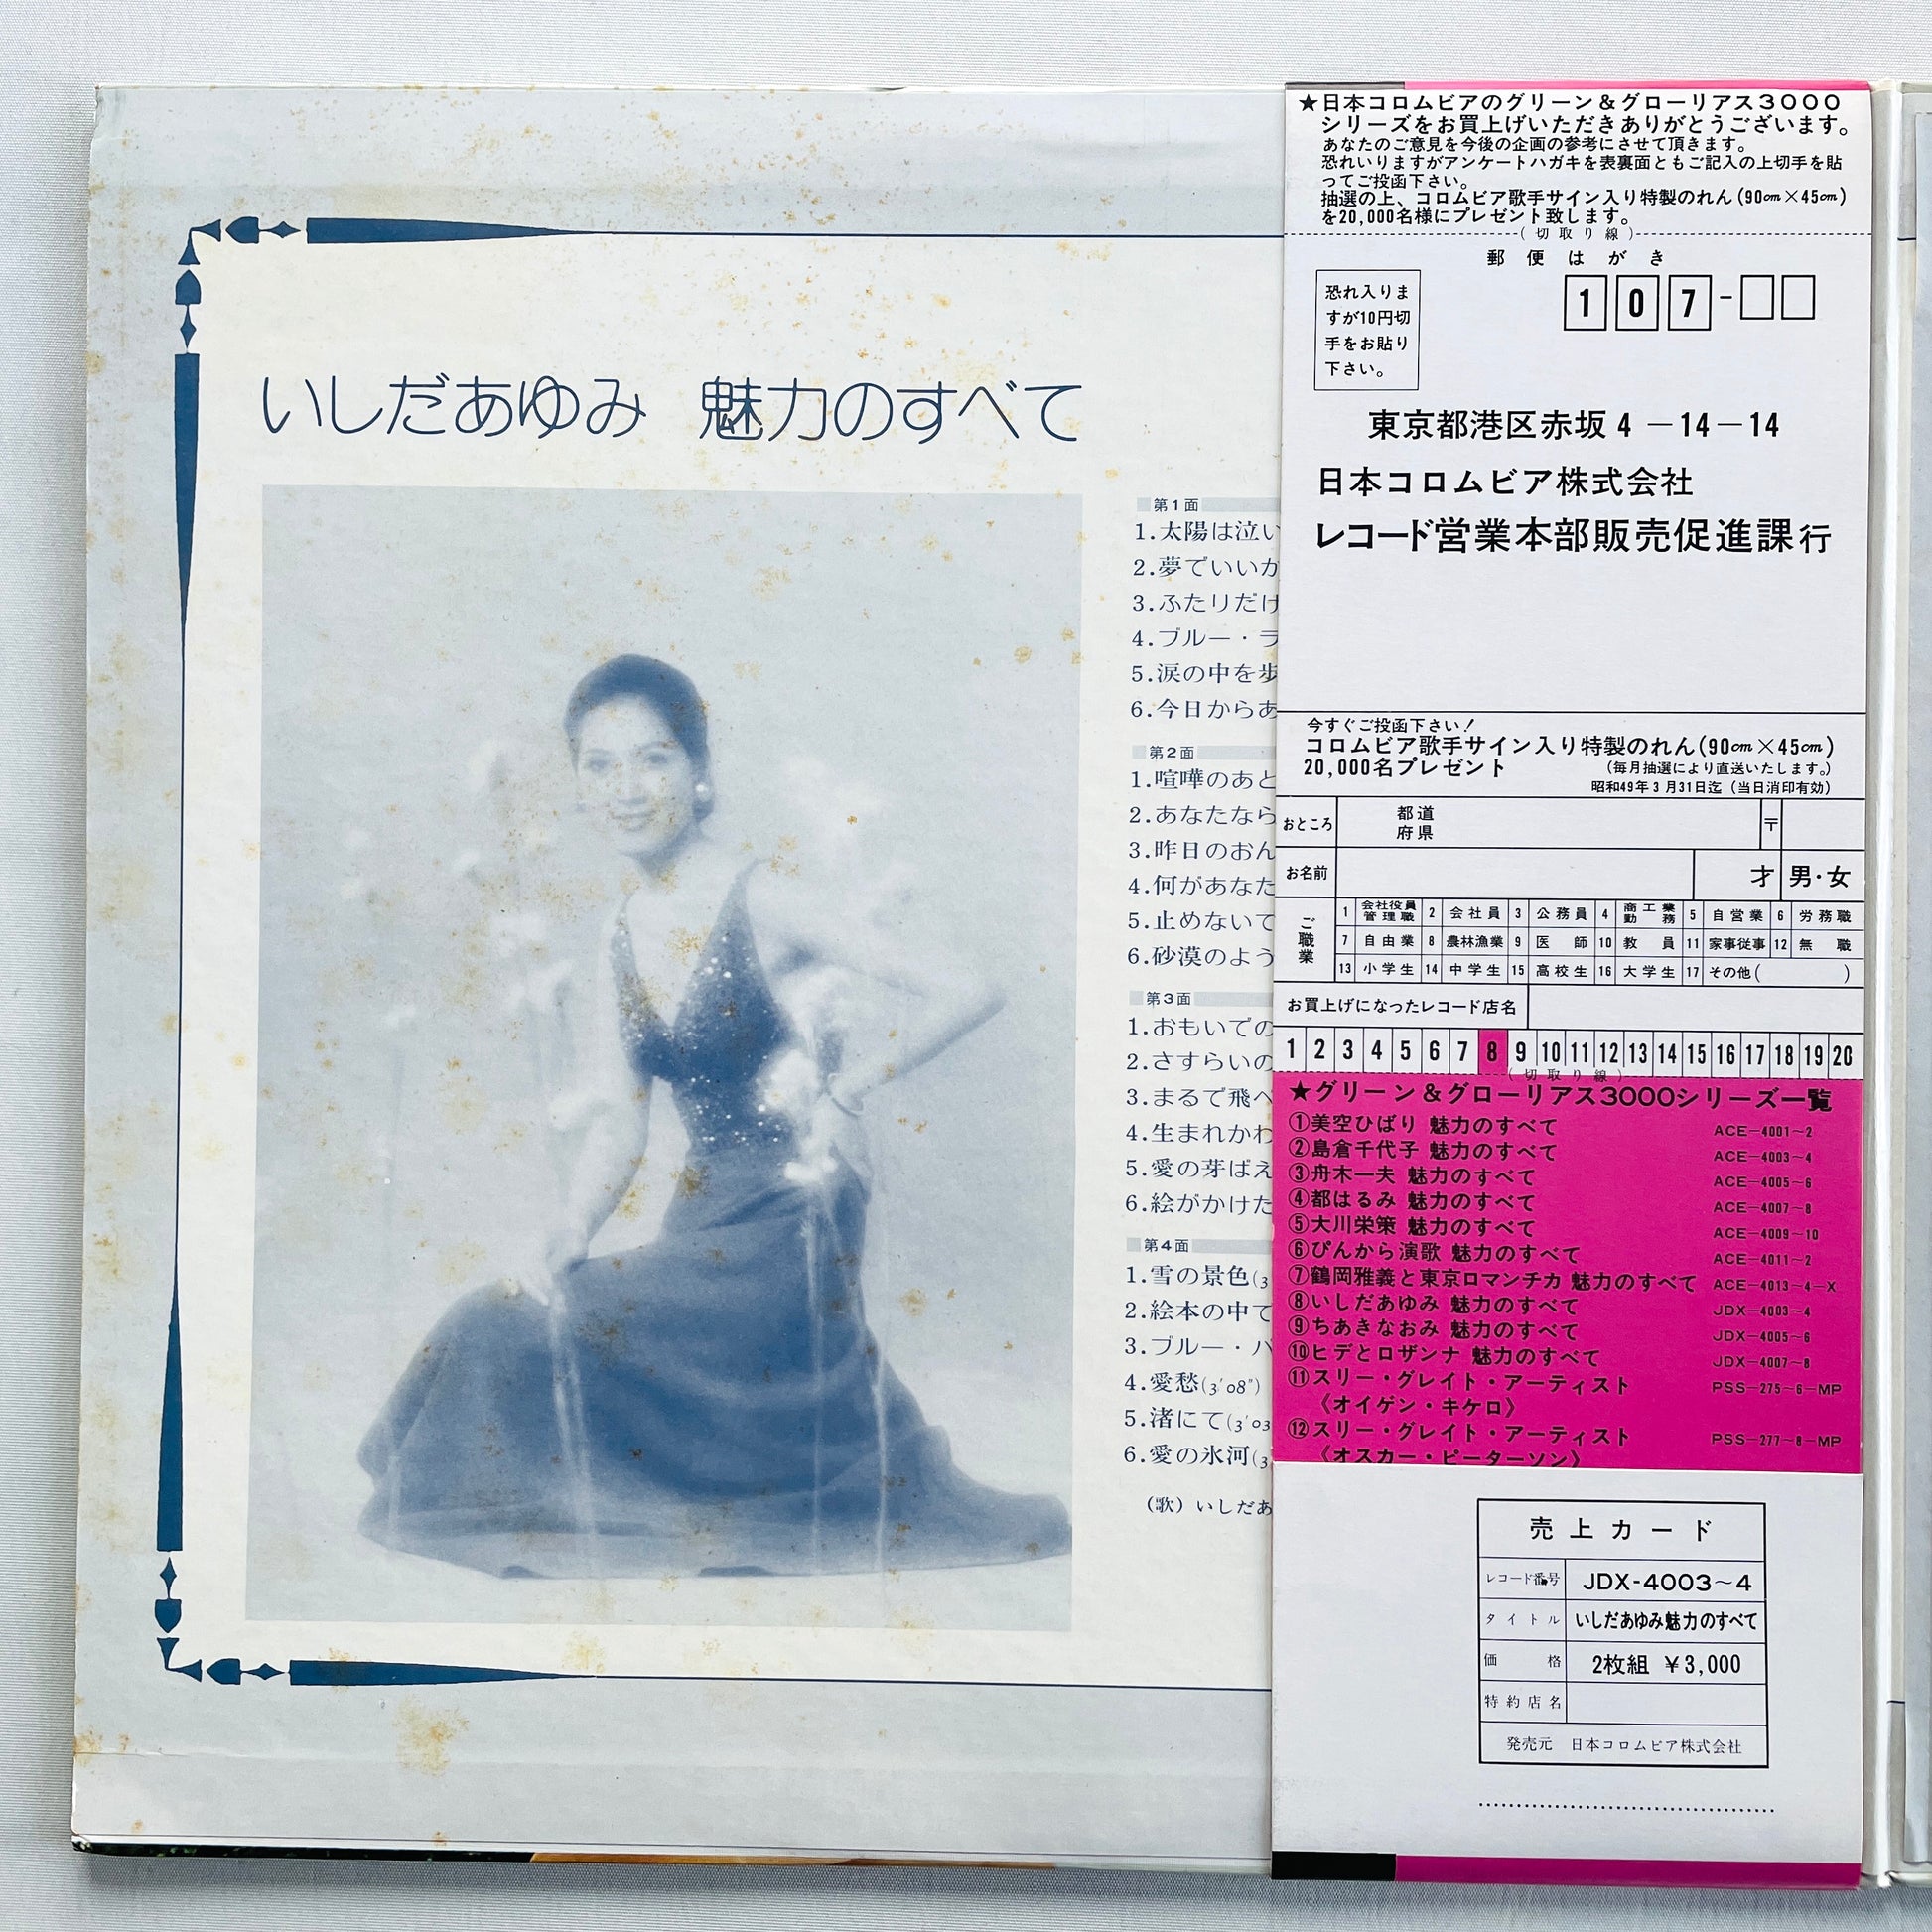 いしだあゆみ 魅力のすべて
第1面
1.太陽は泣い
2.夢でいいか
3.ふたりだけ
4.ブルー・ラ
5.涙の中を歩
6.今日からあ
第2面
1.喧嘩のあと
2.あなたなら
3.昨日のおん
4.何があなた
5.止めないで
6.砂漠のよう
第3面
1.おもいでの
2.さすらいの
3.まるで飛べ
4.生まれかわ
5.愛の芽ばえ
6.絵がかけた
第4面
1.雪の景色(3
2.絵本の中で
3.ブルー・バ
4.愛愁(3'08")
5.渚にて(3'03
6.愛の氷河(3
(歌) いしだあ
★日本コロムビアのグリーン&グローリアス3000
シリーズをお買上げいただきありがとうございます。
あなたのご意見を今後の企画の参考にさせて頂きます。
恐れいりますがアンケートハガキを表裏面ともご記入の上切手を貼
ってご投函下さい。
抽選の上、コロムビア歌手サイン入り特製のれん(90cm×45cm)
を20,000名様にプレゼント致します。
(切取り線)
郵便はがき
恐れ入りま
すが10円切
手をお貼り
下さい。
107-
東京都港区赤坂4-14-14
日本コロムビア株式会社
レコード営業本部販売促進課行
今すぐご投函下さい!
コロムビア歌手サイン入り特製のれん(90cm×45cm)
20,000名プレゼント (毎月抽選により直送いたします。)
昭和49年3月31日迄(当日消印有効)
おところ 都道府県 〒
お名前 才 男・女
ご職業
1 会社役員管理職 2 会社員 3 公務員 4 商工業勤務 5 自営業 6 労務職
7 自由業 8 農林漁業 9 医師 10 教員 11 家事従事 12 無職
13 小学生 14 中学生 15 高校生 16 大学生 17 その他( )
お買上げになったレコード店名
1 2 3 4 5 6 7 8 9 10 11 12 13 14 15 16 17 18 19 20
(切取り線)
★グリーン&グローリアス3000シリーズ一覧
①美空ひばり 魅力のすべて ACE-4001~2
②島倉千代子 魅力のすべて ACE-4003~4
③舟木一夫 魅力のすべて ACE-4005~6
④都はるみ 魅力のすべて ACE-4007~8
⑤大川栄策 魅力のすべて ACE-4009~10
⑥ぴんから演歌 魅力のすべて ACE-4011~2
⑦鶴岡雅義と東京ロマンチカ 魅力のすべて ACE-4013~4-X
⑧いしだあゆみ 魅力のすべて JDX-4003~4
⑨ちあきなおみ 魅力のすべて JDX-4005~6
⑩ヒデとロザンナ 魅力のすべて JDX-4007~8
⑪スリー・グレイト・アーティスト PSS-275~6-MP
《オイゲン・キケロ》
⑫スリー・グレイト・アーティスト PSS-277~8-MP
《オスカー・ピーターソン》
売上カード
レコード番号 JDX-4003~4
タイトル いしだあゆみ魅力のすべて
価格 2枚組 ¥3,000
特約店名
発売元 日本コロムビア株式会社